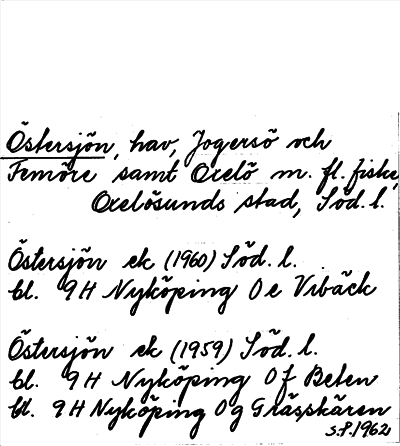 Östersjön, hav, Jogersö och
Femöre samt Oxelö m. fl. fiske,
Oxelösunds stad, Söd. l.
Östersjön ek (1960) Söd. l.
bl. 9H Nyköping 0e Vibäck
Östersjön ek (1959) Söd. l.
bl. 9H Nyköping 0f Beten
bl. 9H Nyköping 0g Grässkären
S.P. 1962